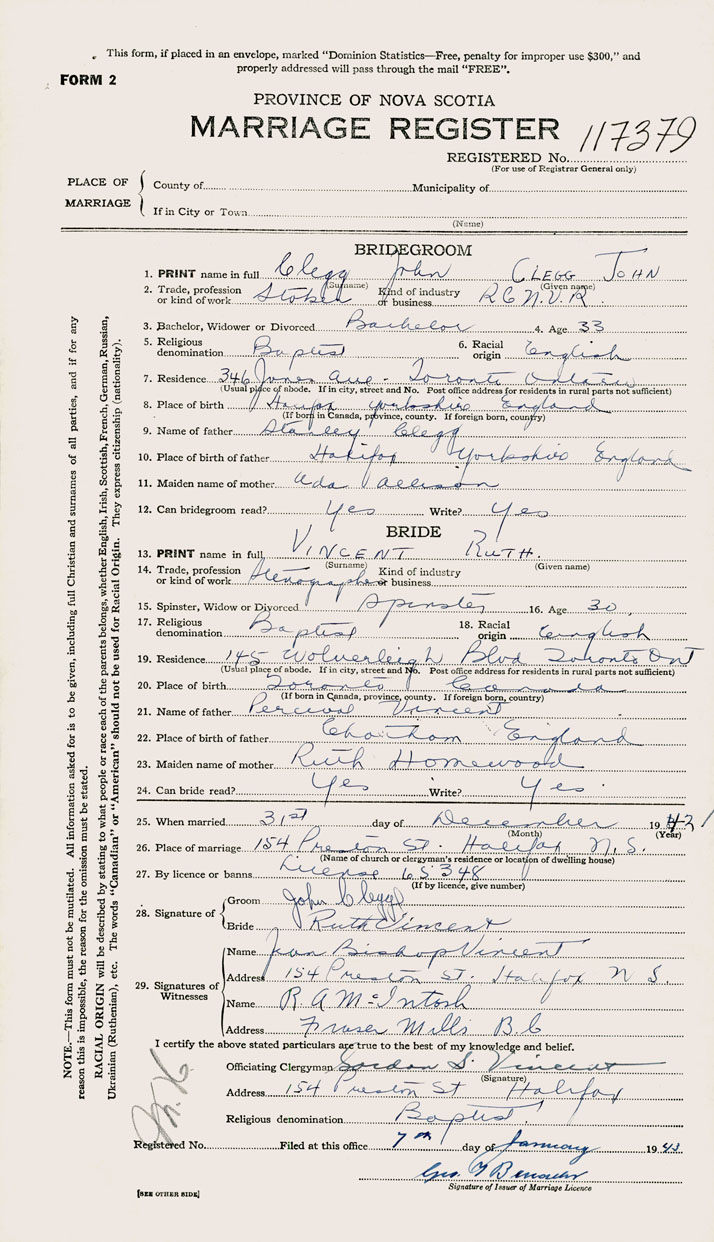 This form, if placed in an envelope, marked "Dominion Statistics—Free, penalty for improper use $300," and
properly addressed will pass through the mail "FREE".
FORM 2
PROVINCE OF NOVA SCOTIA
MARRIAGE REGISTER
117379
REGISTERED No.
(For use of Registrar General only)
PLACE OF MARRIAGE
County of Municipality of
If in City or Town
(Name)
BRIDEGROOM
1. PRINT name in full Clegg John CLEGG JOHN
(Surname) (Given name)
2. Trade, profession or kind of work Stoker Kind of industry or business R.C.N.V.R.
3. Bachelor, Widower or Divorced Bachelor 4. Age 33
5. Religious denomination Baptist 6. Racial origin English
7. Residence 346 Jones Ave - Toronto Ontario
(Usual place of abode. If in city, street and No. Post office address for residents in rural parts not sufficient)
8. Place of birth Halifax Yorkshire England
(If born in Canada, province, county. If foreign born, country)
9. Name of father Stanley Clegg
10. Place of birth of father Halifax Yorkshire England
11. Maiden name of mother Ada Allison
12. Can bridegroom read? Yes Write? Yes
BRIDE
13. PRINT name in full VINCENT RUTH.
(Surname) (Given name)
14. Trade, profession or kind of work Stenographer Kind of industry or business
15. Spinster, Widow or Divorced Spinster 16. Age 30
17. Religious denomination Baptist 18. Racial origin English
19. Residence 145 Wolverleigh Blvd Toronto Ont
(Usual place of abode. If in city, street and No. Post office address for residents in rural parts not sufficient)
20. Place of birth Toronto Canada
(If born in Canada, province, county. If foreign born, country)
21. Name of father Percival Vincent
22. Place of birth of father Chatham England
23. Maiden name of mother Ruth Homewood
24. Can bride read? Yes Write? Yes
25. When married 31st day of December 1942
(Month) (Year)
26. Place of marriage 154 Preston St. Halifax N.S.
(Name of church or clergyman's residence or location of dwelling house)
27. By licence or banns License 65348
(If by licence, give number)
28. Signature of
Groom John Clegg
Bride Ruth Vincent
29. Signatures of Witnesses
Name Jean Bishop Vincent
Address 154 Preston St. Halifax N S.
Name R A McIntosh
Address Fraser Mills B.C
I certify the above stated particulars are true to the best of my knowledge and belief.
Officiating Clergyman Gordon S. Vincent
(Signature)
Address 154 Preston St Halifax
Religious denomination Baptist
Registered No. Filed at this office 7th day of January 1943
Signature of Issuer of Marriage Licence
[SEE OTHER SIDE]
NOTE.—This form must not be mutilated. All information asked for is to be given, including full Christian and surnames of all parties, and if for any
reason this is impossible, the reason for the omission must be stated.
RACIAL ORIGIN will be described by stating to what people or race each of the parents belongs, whether English, Irish, Scottish, French, German, Russian,
Ukrainian (Ruthenian), etc. The words "Canadian" or "American" should not be used for Racial Origin. They express citizenship (nationality).